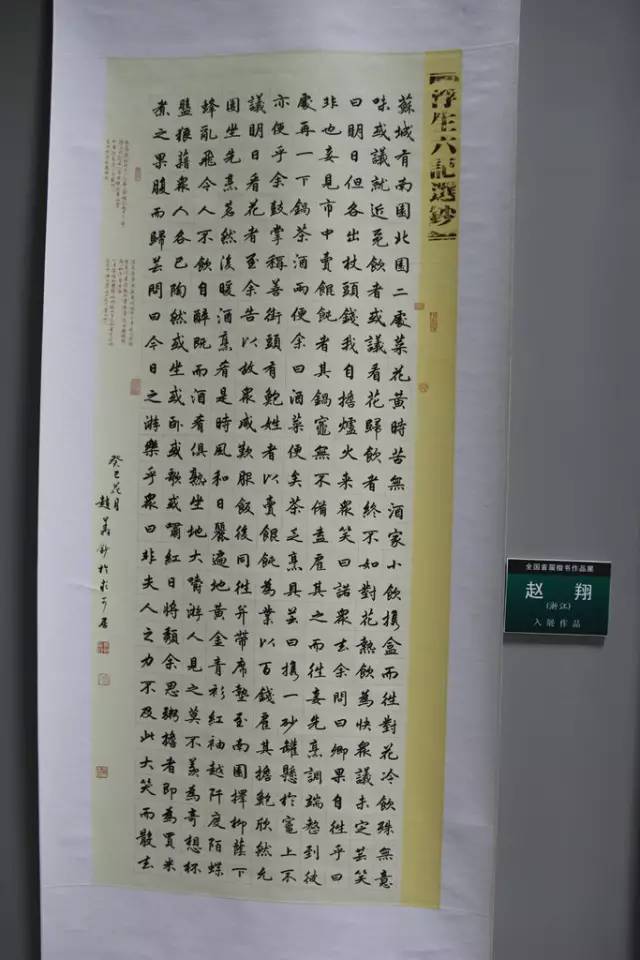 【浮生六記選鈔】
蘇城有南園北園二處菜花黃時苦無酒家小飲攜盒而往對花冷飲殊無意
味或議就近覓飲者或議看花歸飲者終不如對花熱飲為快眾議未定芸笑
曰明日但各出杖頭錢我自擔爐火來眾笑曰諾眾去余問曰卿果自往乎曰
非也妾見市中賣餛飩者其鍋竈無不備盍雇其之而往妾先烹調端整到彼
處再一下鍋茶酒兩便余曰酒菜便矣茶乏烹具芸曰攜一砂罐懸於竈上不
亦便乎余鼓掌稱善街頭有鮑姓者以賣餛飩為業以百錢雇其擔鮑欣然允
議明日看花者至余告以故眾咸歎服飯後同往并帶席墊至南園擇柳蔭下
團坐先烹茗然後暖酒烹肴是時風和日麗遍地黃金青衫紅袖越阡度陌蝶
蜂亂飛令人不飲自醉既而酒肴俱熟坐地大嚼游人見之莫不羨為奇想杯
盤狼藉眾人各已陶然或坐或臥或歌或嘯紅日將頹余思粥擔者即為買米
煮之果腹而歸芸問曰今日之游樂乎眾曰非夫人之力不及此大笑而散去
癸巳花月
趙翔鈔於
全国首届楷书作品展
赵 翔
(浙江)
入展作品